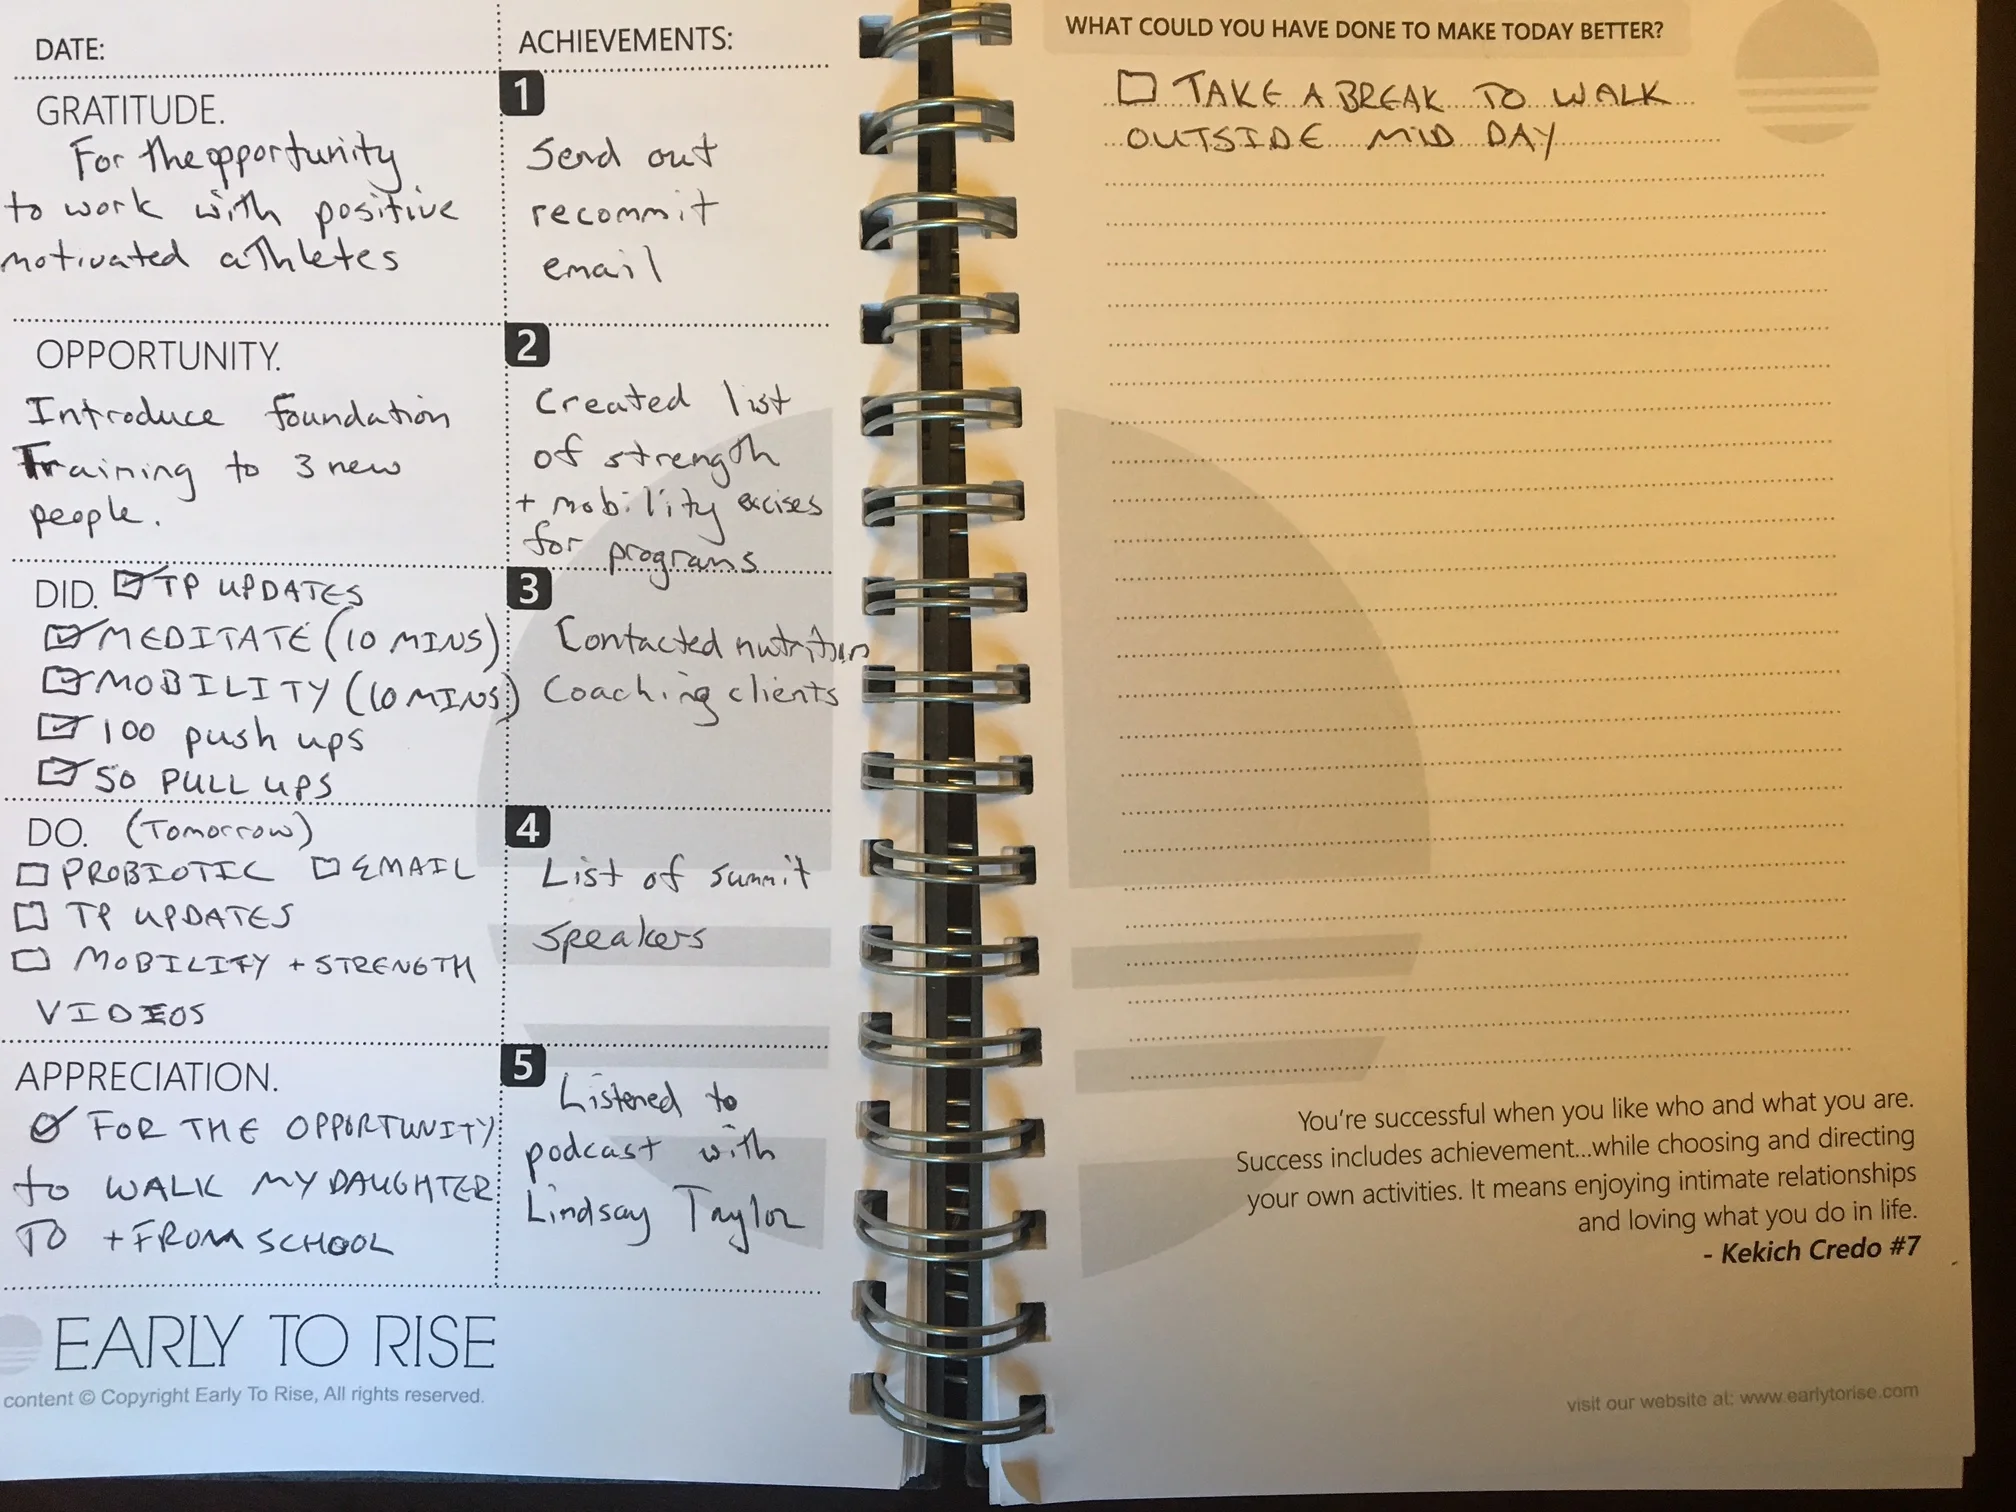 DATE:
GRATITUDE.
For the opportunity
to work with positive
motivated athletes
OPPORTUNITY.
Introduce foundation
Training to 3 new
people.
DID. TP UPDATES
MEDITATE (10 MINS)
MOBILITY (10 MINS)
100 push ups
50 PULL UPS
DO. (Tomorrow)
PROBIOTIC EMAIL
TP UPDATES
MOBILITY + STRENGTH
VIDEOS
APPRECIATION.
FOR THE OPPORTUNITY
to WALK MY DAUGHTER
TO + FROM SCHOOL
EARLY TO RISE
content © Copyright Early To Rise, All rights reserved.
ACHIEVEMENTS:
1
Send out
recommit
email
2
Created list
of strength
+ mobility excises
for programs
3
Contacted nutrition
Coaching clients
4
List of summit
speakers
5
Listened to
podcast with
Lindsay Taylor
WHAT COULD YOU HAVE DONE TO MAKE TODAY BETTER?
TAKE A BREAK TO WALK
OUTSIDE MID DAY
You're successful when you like who and what you are.
Success includes achievement...while choosing and directing
your own activities. It means enjoying intimate relationships
and loving what you do in life.
- Kekich Credo #7
visit our website at: www.earlytorise.com